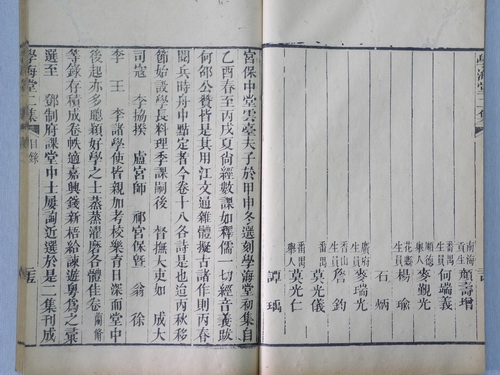 南海貢生 顏壽增
番禺生員 何瑞義
順德舉人 麥觀光
花縣生員 楊瑜
石炳
廣府生員 麥瑞光
香山生員 詹鈞
番禺 莫光儀
番禺舉人 莫光仁
譚瑀
宮保中堂雲臺夫子於甲申冬選刻學海堂初集自
乙酉春至丙戌夏尚經數課如釋儒一切經音義跋
何邵公贊皆是其用江文通雜體擬古諸作則丙春
閱兵時舟中點定者今卷十八各詩是也迨丙秋移
節始設學長料理季課嗣後 督撫大吏如 成大
司寇 李協揆 盧宮師 祁宮保暨 翁 徐
李 王 李諸學使皆親加考校樂育日深面堂中
後起亦多聰穎好學之士蒸蒸濯磨各體佳卷
等錄存積成卷帙適嘉興錢新梧給諫遊粵為之彙
選至 鄧制府課堂中士屢詢近選於是二集刊成
學海堂二集 目錄